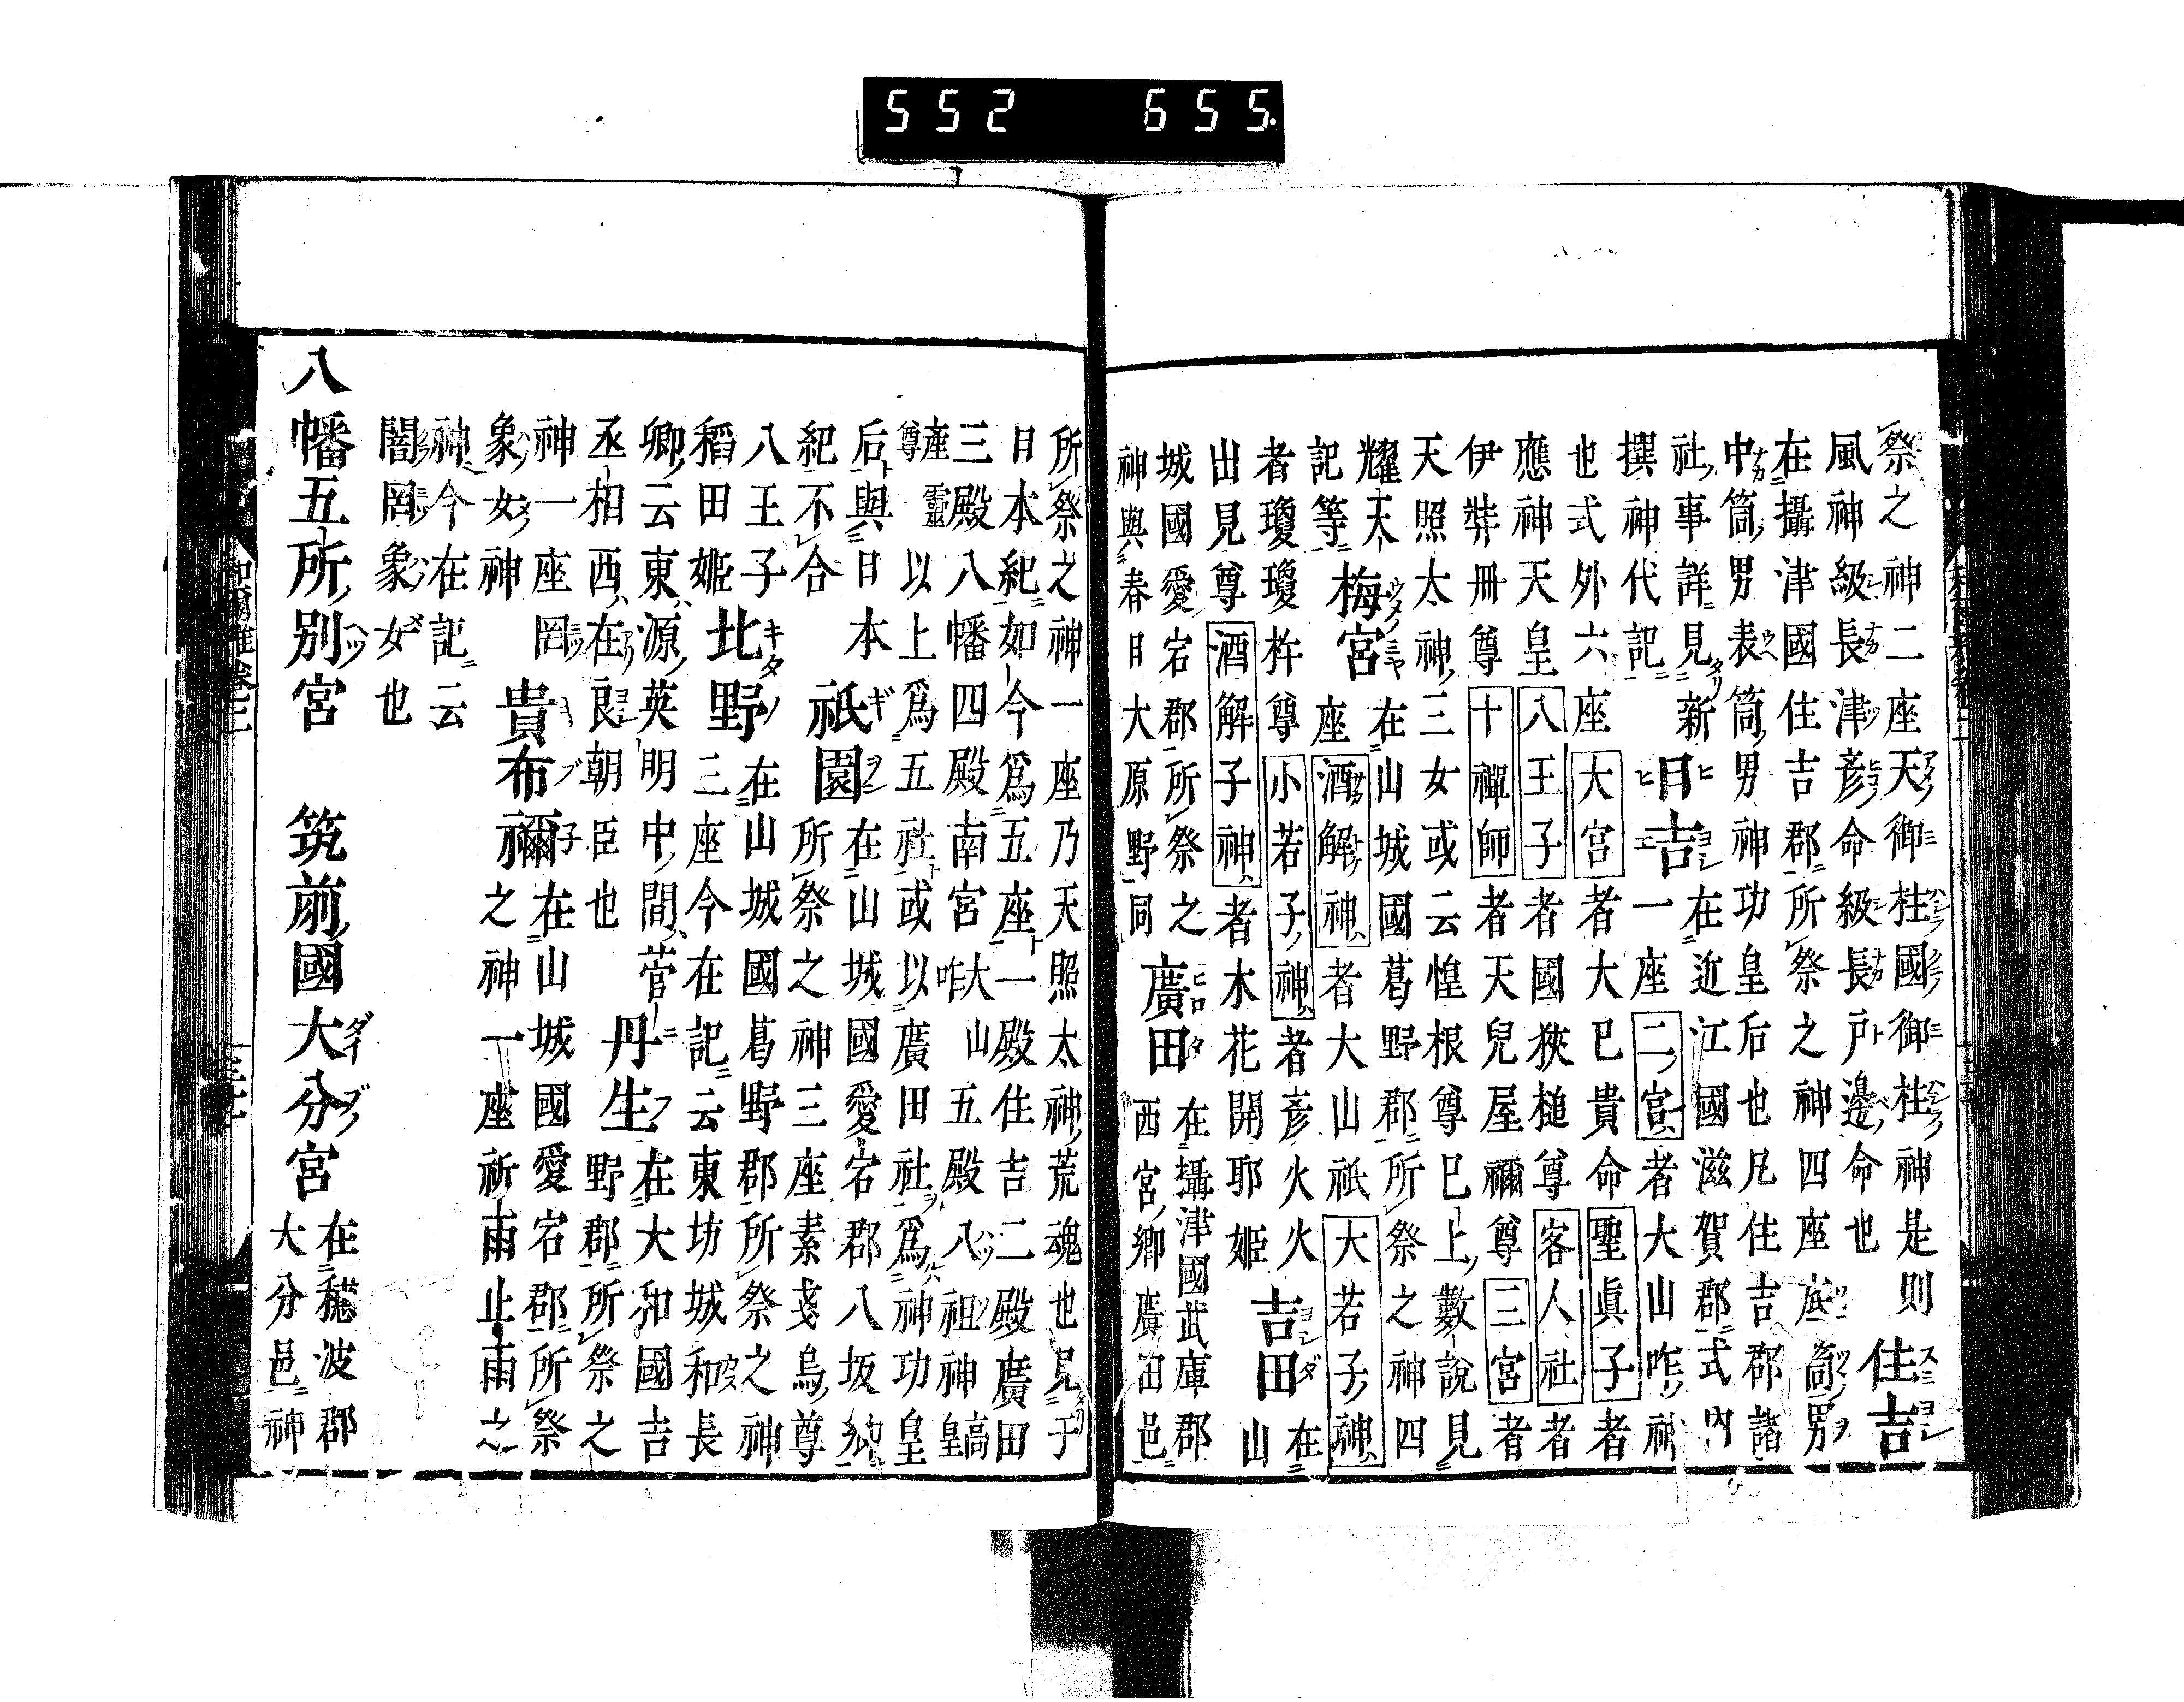 552 655.
祭之神二座天御柱國御柱神是則住吉
風神級長津彦命級長戸邊命也
在攝津國住吉郡所祭之神四座底筒男
中筒男表筒男神功皇后也凡住吉郡諸
社事詳見新
撰神代記日吉在近江國滋賀郡式内
一座二宮者大山咋神
也式外六座大宮者大巳貴命聖眞子者
應神天皇八王子者國狹槌尊客人社者
伊弉冊尊十禪師者天兒屋禰尊三宮者
天照太神三女或云惶根尊巳上數說見
耀天
記等梅宮在山城國葛野郡所祭之神四
座酒解神者大山祇大若子神
者瓊瓊杵尊小若子神者彦火火
出見尊酒解子神者木花開耶姫吉田在
山
城國愛宕郡所祭之
神與春日大原野同廣田在攝津國武庫郡
西宮鄉廣田邑
所祭之神一座乃天照太神荒魂也見于
日本紀如今爲五座一殿住吉二殿廣田
三殿八幡四殿南宮大山咋五殿八祖神高皇
産靈尊以上爲五社或以廣田社爲神功皇
后與日本
紀不合祇園在山城國愛宕郡八坂鄉
所祭之神三座素戔烏尊
八王子
稻田姫北野在山城國葛野郡所祭之神
三座今在記云東坊城和長
卿云東源英明中間菅
丞相西在良朝臣也丹生在大和國吉
野郡所祭之
神一座罔
象女神貴布禰在山城國愛宕郡所祭
之神一座祈雨止雨之
神今在記云
闇罔象女也
八幡五所別宮　筑前國大分宮在穗波郡
大分邑神
和爾雅卷二